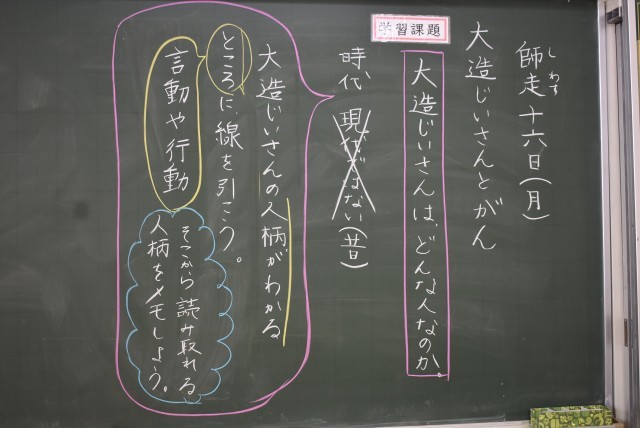 師走十六日(月)
しわす
大造じいさんとがん
学習課題
大造じいさんは、どんな人なのか。
時代 現代ではない(昔)
大造じいさんの人柄がわかる
ところに線を引こう。
言動や行動
そこから読み取れる
人柄をメモしよう。